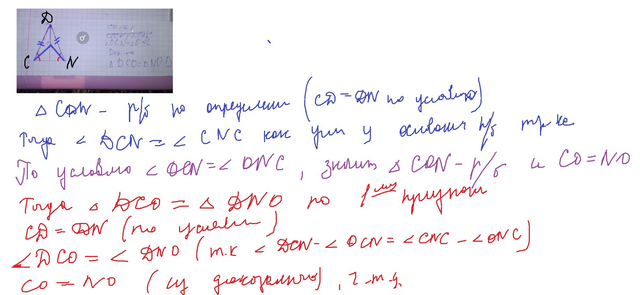 D
C N
△ CDN – р/б по определени (CD = DN по условию)
Тогда ∠ DCN = ∠ CNC как углы у основания р/б тр-ка
По условию ∠ OCN = ∠ ONC, значит △ CON – р/б и CO = NO
Тогда △ DCO = △ DNO по 1му признаку
CD = DN (по условию)
∠ DCO = ∠ DNO (т.к ∠ DCN – ∠ OCN = ∠ CNC – ∠ ONC)
CO = NO (из доказанного), ч.т.д.